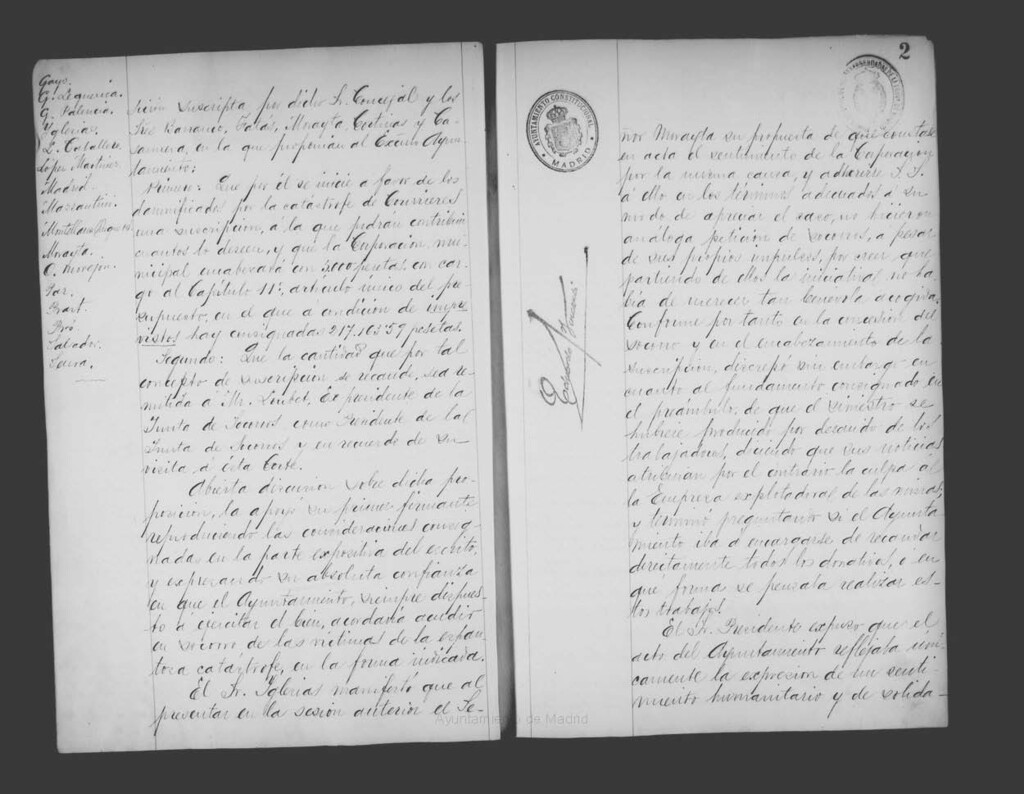 Gayo.
G. Izquierdo.
G. Valencia.
Yglesias.
L. Caballero.
López Martínez.
Madrid.
Mazzantini.
Morayta.
C. Moregón.
Paz.
Prast.
Piró
Salvador.
Serra.
sición suscripta por dicho Sr. Concejal y los
Sres Barranco, Talás, Morayta, Cortinas y Ca-
samiera, en la que proponían al Excmo Ayun-
tamiento:
Primero: Que por él se inicie á favor de los
damnificados por la catástrofe de Courrieres
una suscripción, á la que podrán contribuir
cuantos lo deseen, y que la Corporación mu-
nicipal encabezará con 5.000 pesetas, con car-
go al Capítulo 11º, artículo único del pre-
supuesto, en el que á condición de impre-
vistos hay consignadas 217,103'59 pesetas.
Segundo: Que la cantidad que por tal
concepto de suscripción se recaude, sea re-
mitida á Mr. Loubet, Ex presidente de la
Junta de Socorros, como Presidente de la
Junta de Socorros y en recuerdo de su
visita á esta Corte.
Abierta discusión sobre dicha pro-
posición, la apoyó su primer firmante
reproduciendo las consideraciones consig-
nadas en la parte expositiva del escrito,
y expresando su absoluta confianza
en que el Ayuntamiento, siempre dispues-
to á ejercitar el bien, acordaría acudir
en socorro de las víctimas de la espan-
tosa catástrofe, en la forma indicada.
El Sr. Yglesias manifestó que al
presentar en la sesión anterior el Se-
AYUNTAMIENTO CONSTITUCIONAL
MADRID
2
ñor Morayta su propuesta de que constase
en acta el sentimiento de la Corporación
por la misma causa, y adherirse S. S.
á ello en los términos adecuados á su
modo de apreciar el caso, no hicieron
análoga petición de socorros, a pesar
de sus propios impulsos, por creer que
partiendo de ellos la iniciativa, no ha-
bía de merecer tan benévola acogida.
Conforme por tanto en la concesión del
socorro y en el encabezamiento de la
suscripción, discrepó sin embargo en
cuanto al fundamento consignado en
el preámbulo, de que el siniestro se
hubiese producido por descuido de los
trabajadores, diciendo que sus noticias
atribuían por el contrario la culpa á
la Empresa explotadora de las minas,
y terminó preguntando si el Ayunta-
miento iba á encargarse de recaudar
directamente todos los donativos, ó en
qué forma se pensaba realizar es-
tos trabajos.
El Sr. Presidente expuso que el
acto del Ayuntamiento reflejaba úni-
camente la expresión de un senti-
miento humanitario y de solida-
Ayuntamiento de Madrid